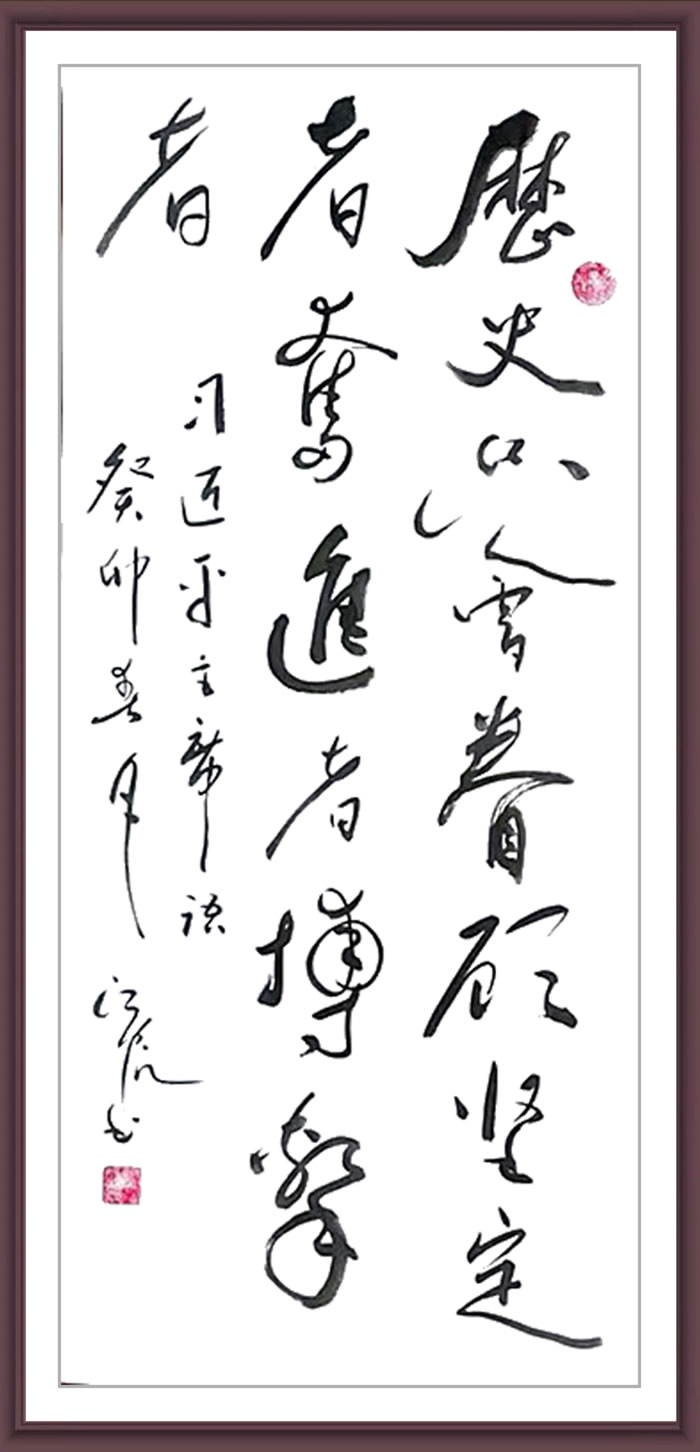 歷史只會眷顾坚定
者奮進者搏擊
者
习近平主席语
癸卯春月 书